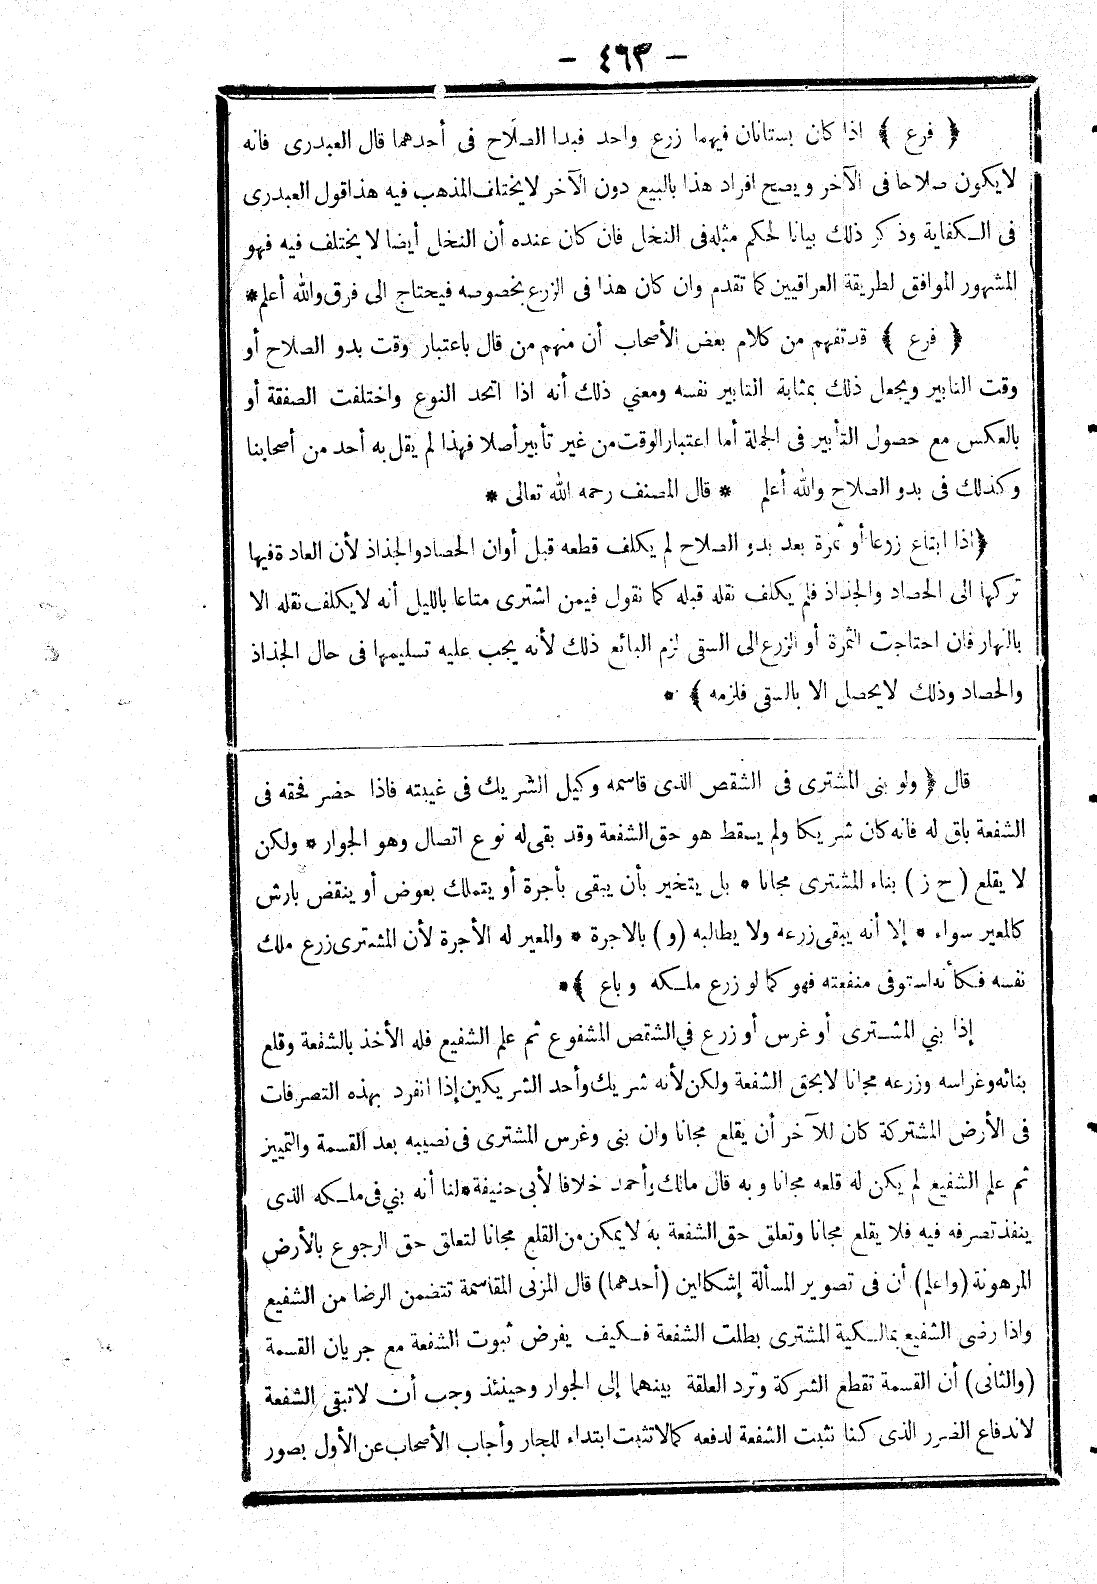 - ٤٦٣ -
﴿ فرع ﴾ اذا كان بستانان فيهما زرع واحد فبدا الصلاح فى أحدهما قال العبدرى فانه
لايكون صلاحا فى الآخر ويصح افراد هذا بالبيع دون الآخر لايختلف المذهب فيه هذا قول العبدرى
فى الكفاية وذكر ذلك بيانا لحكم مثله فى النخل فان كان عنده أن النخل أيضا لا يختلف فيه فهو
المشهور الموافق لطريقة العراقيين كما تقدم وان كان هذا فى الزرع بخصوصه فيحتاج الى فرق والله أعلم *
﴿ فرع ﴾ قد تفهم من كلام بعض الأصحاب أن منهم من قال باعتبار وقت بدو الصلاح أو
وقت التابير ويجعل ذلك بمثابة التابير نفسه ومعني ذلك أنه اذا اتحد النوع واختلفت الصفقة أو
بالعكس مع حصول التأبير فى الجملة أما اعتبار الوقت من غير تأبير أصلا فهذا لم يقل به أحد من أصحابنا
وكذلك فى بدو الصلاح والله أعلم * قال المصنف رحمه الله تعالى *
﴿اذا ابتاع زرعا أو ثمرة بعد بدو الصلاح لم يكلف قطعه قبل أوان الحصاد والجذاذ لأن العادة فيها
تركها الى الحصاد والجذاذ فلم يكلف نقله قبله كما نقول فيمن اشترى متاعا بالليل أنه لايكلف نقله الا
بالنهار فان احتاجت الثمرة أو الزرع الى السقى لزم البائع ذلك لأنه يجب عليه تسليمها فى حال الجذاذ
والحصاد وذلك لايحصل الا بالسقى فلزمه ﴾ *
قال ﴿ ولو بنى المشترى فى الشقص الذى قاسمه وكيل الشريك فى غيبته فاذا حضر فحقه فى
الشفعة باق له فانه كان شريكا ولم يسقط هو حق الشفعة وقد بقى له نوع اتصال وهو الجوار * ولكن
لا يقلع ( ح ز ) بناء المشترى مجانا * بل يتخير بأن يبقى بأجرة أو يتملك بعوض أو ينقض بارش
كالمعير سواء * إلا أنه يبقى زرعه ولا يطالبه (و) بالاجرة * والمعير له الأجرة لأن المشترى زرع ملك
نفسه فكأنه استوفى منفعته فهو كما لو زرع ملكه وباع ﴾*
إذا بني المشترى أو غرس أو زرع في الشقص المشفوع ثم علم الشفيع فله الأخذ بالشفعة وقلع
بنائه وغراسه وزرعه مجانا لا بحق الشفعة ولكن لأنه شريك وأحد الشريكين إذا انفرد بهذه التصرفات
فى الأرض المشتركة كان للآخر أن يقلع مجانا وان بنى وغرس المشترى فى نصيبه بعد القسمة والتمييز
ثم علم الشفيع لم يكن له قلعه مجانا وبه قال مالك وأحمد خلافا لأبى حنيفة * لنا أنه بني فى ملكه الذى
ينفذ تصرفه فيه فلا يقلع مجانا وتعلق حق الشفعة به لا يمكن من القلع مجانا لتعلق حق الرجوع بالأرض
المرهونة (واعلم) أن فى تصوير المسألة إشكالين (أحدهما) قال المزنى المقاسمة تتضمن الرضا من الشفيع
واذا رضى الشفيع بمالكية المشترى بطلت الشفعة فكيف يفرض ثبوت الشفعة مع جريان القسمة
(والثانى) أن القسمة تقطع الشركة وترد العلقة بينهما إلى الجوار وحينئذ وجب أن لا تبقى الشفعة
لاندفاع الضرر الذى كنا نثبت الشفعة لدفعه كما لا تثبت ابتداء للجار وأجاب الأصحاب عن الأول بصور